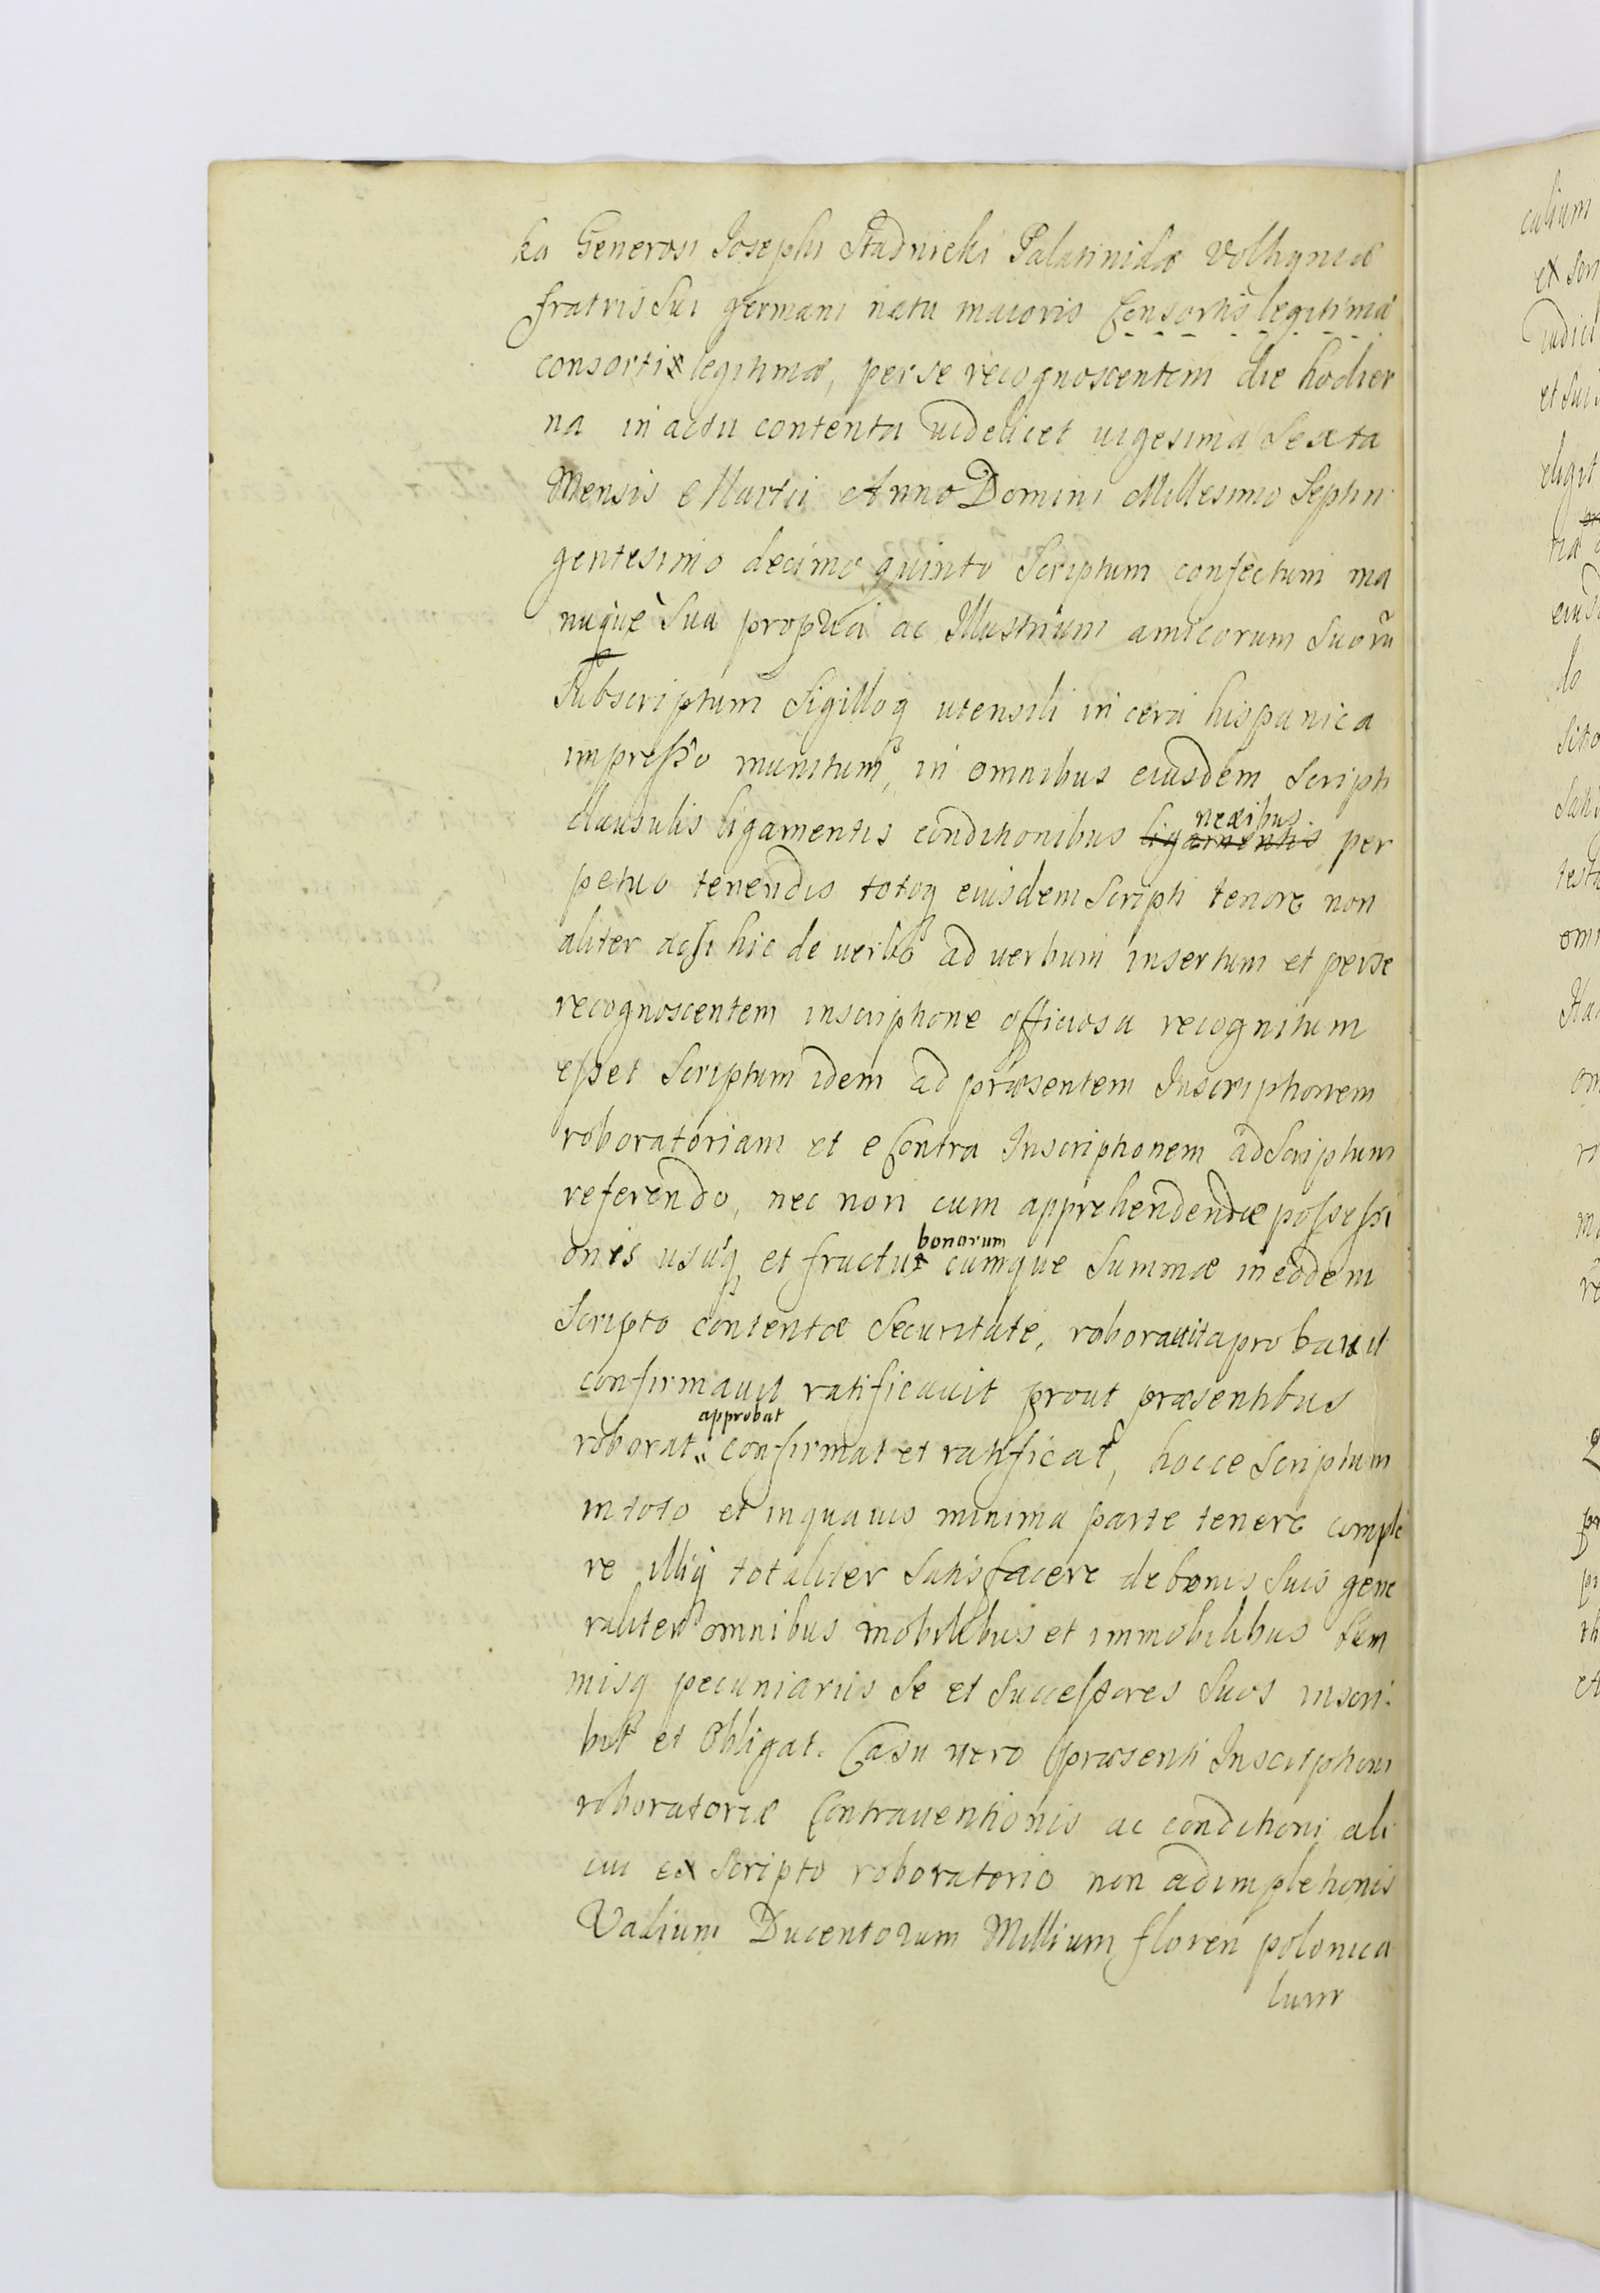 ka Generosi Josephi Stadnicki Palatinidæ Volhyniæ
fratris Sui germani natu maioris Consortis legitimæ
consortis legitimæ, per se recognoscentem die hodier
na in actu contenta uidelicet uigesima Sexta
Mensis Martii Anno Domini Millesimo Septin
gentesimo decimo quinto Scriptum confectum ma
nuquè Sua propria ac Illustrium amicorum Suorũ
Subscriptum Sigilloq utensili in cera hispanica
impresso munitum, in omnibus eiusdem Scripti
clausulis ligamentis conditionibus ligamentis nexibus per
petuo tenendis totoq eiusdem Scripti tenore non
aliter acsi hic de uerbo ad uerbum insertum et per se
recognoscentem inscriptione officiosa recognitum
esset Scriptum idem ad præsentem Inscriptionem
roboratoriam et e Contra Inscriptionem ad Scriptum
referendo, nec non cum apprehendendæ possessi
onis ususq et fructus bonorum cumque Summæ in eodem
Scripto contentæ Securitate, roborauit aprobauit
confirmauit ratificauit prout præsentibus
roborat approbat confirmat et ratificat, hocce Scriptum
in toto et in quauis minima parte tenere comple
re illiq totaliter Satisfacere de bonis Suis gene
raliter omnibus mobilibus et immobilibus Sum
misq pecuniariis Se et Successores Suos inscri
bit et Obligat. Casu uero præsenti Inscriptioni
roboratoriæ Contrauentionis ac conditioni ali
cui ex Scripto roboratorio non adimpletionis
Vadium Ducentorum Millium floren polonica
lium